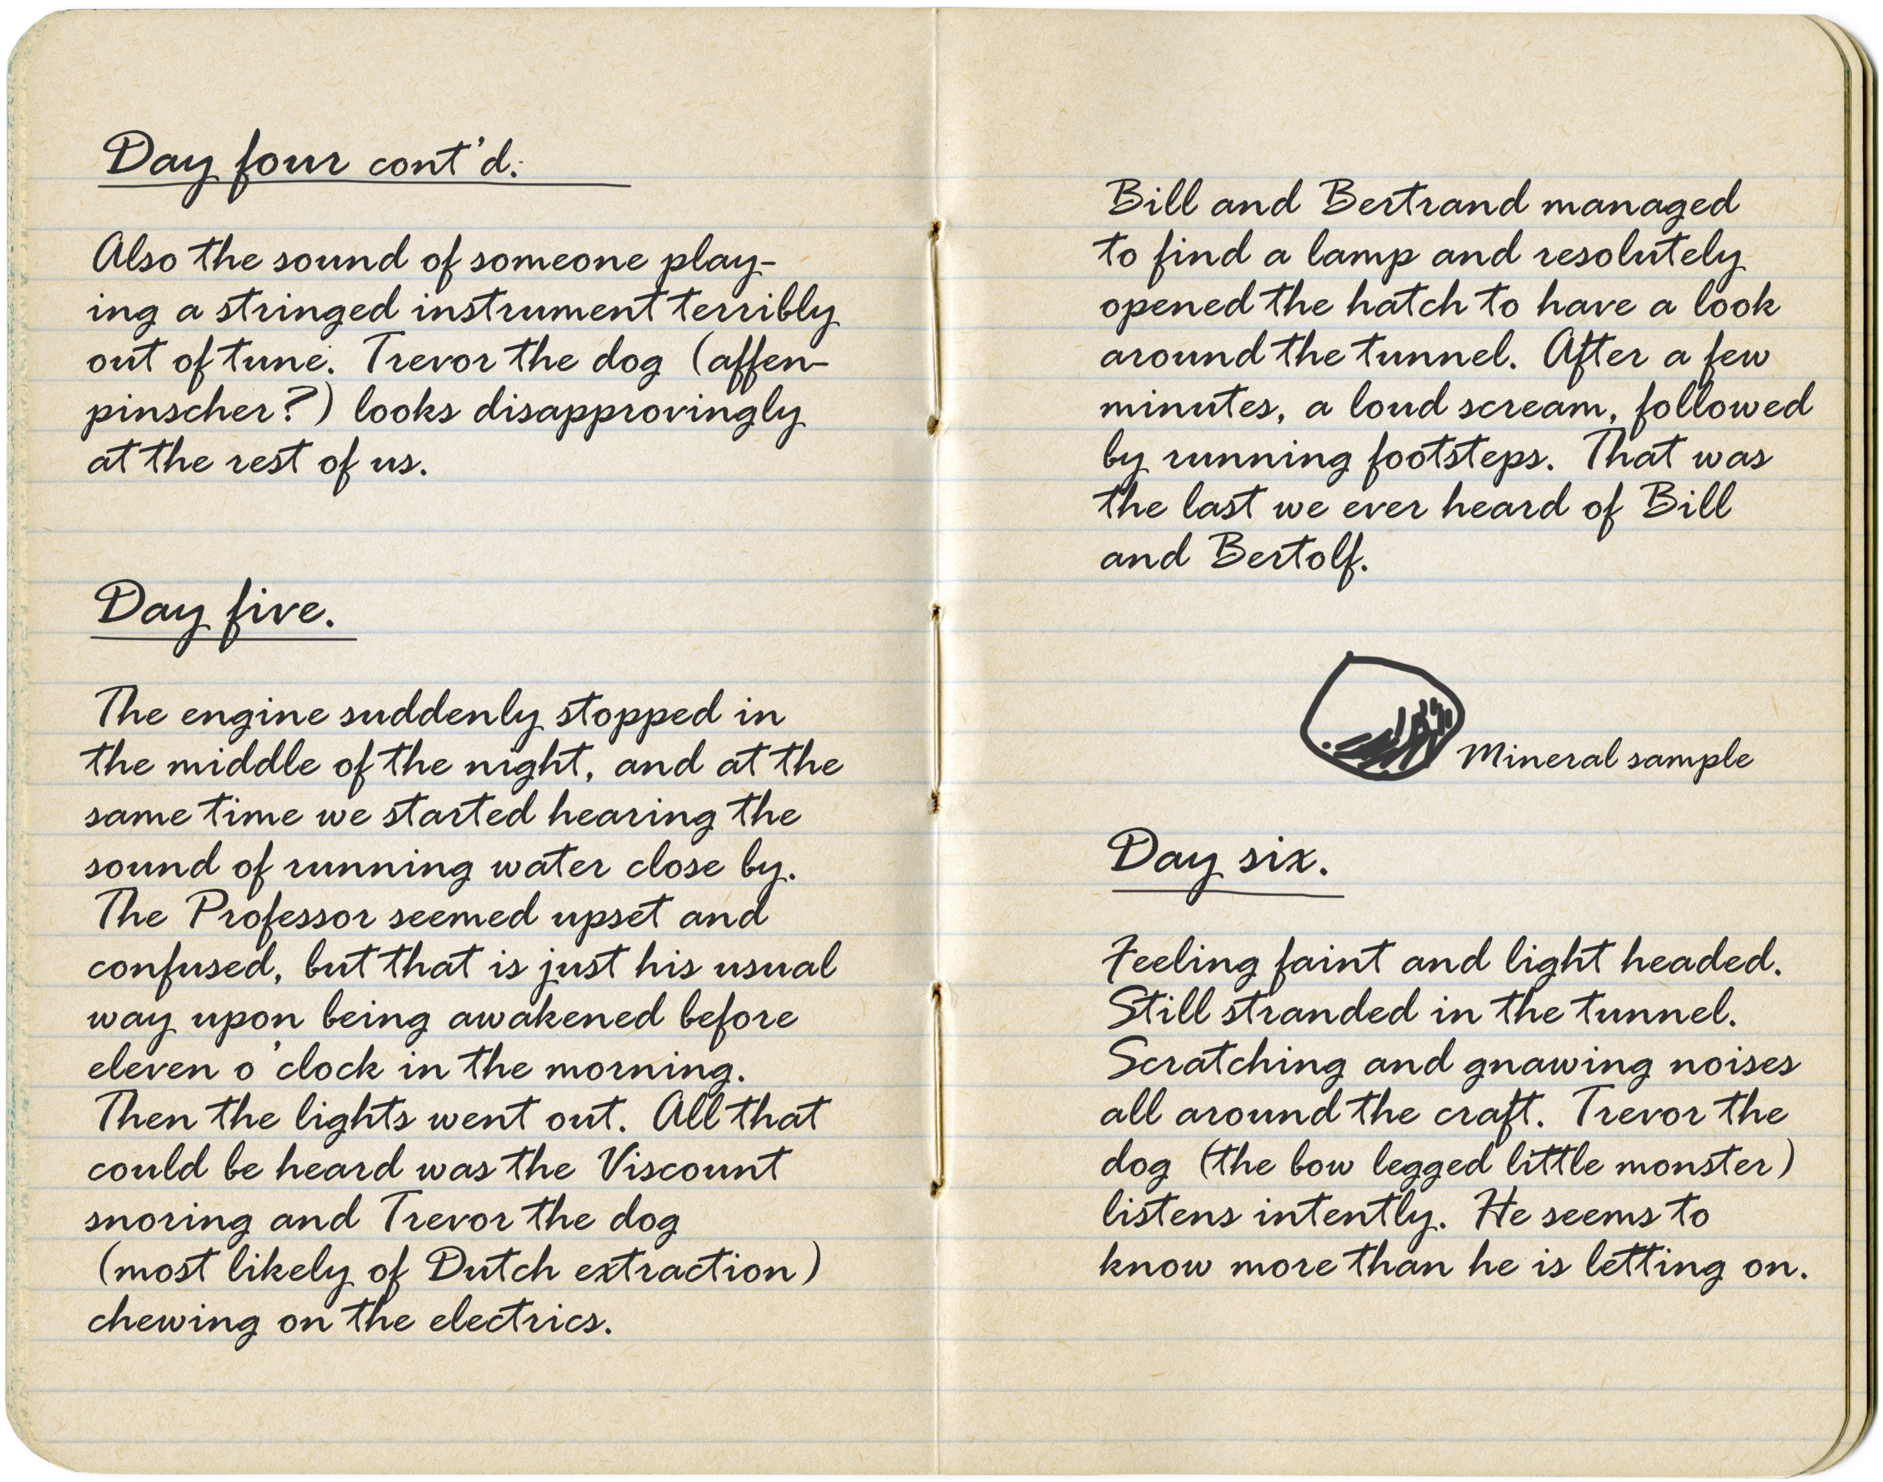 Day four cont'd:
Also the sound of someone play-
ing a stringed instrument terribly
out of tune. Trevor the dog (affen-
pinscher?) looks disapprovingly
at the rest of us.
Day five.
The engine suddenly stopped in
the middle of the night, and at the
same time we started hearing the
sound of running water close by.
The Professor seemed upset and
confused, but that is just his usual
way upon being awakened before
eleven o'clock in the morning.
Then the lights went out. All that
could be heard was the Viscount
snoring and Trevor the dog
(most likely of Dutch extraction)
chewing on the electrics.
Bill and Bertrand managed
to find a lamp and resolutely
opened the hatch to have a look
around the tunnel. After a few
minutes, a loud scream, followed
by running footsteps. That was
the last we ever heard of Bill
and Bertolf.
Mineral sample
Day six.
Feeling faint and light headed.
Still stranded in the tunnel.
Scratching and gnawing noises
all around the craft. Trevor the
dog (the bow legged little monster)
listens intently. He seems to
know more than he is letting on.